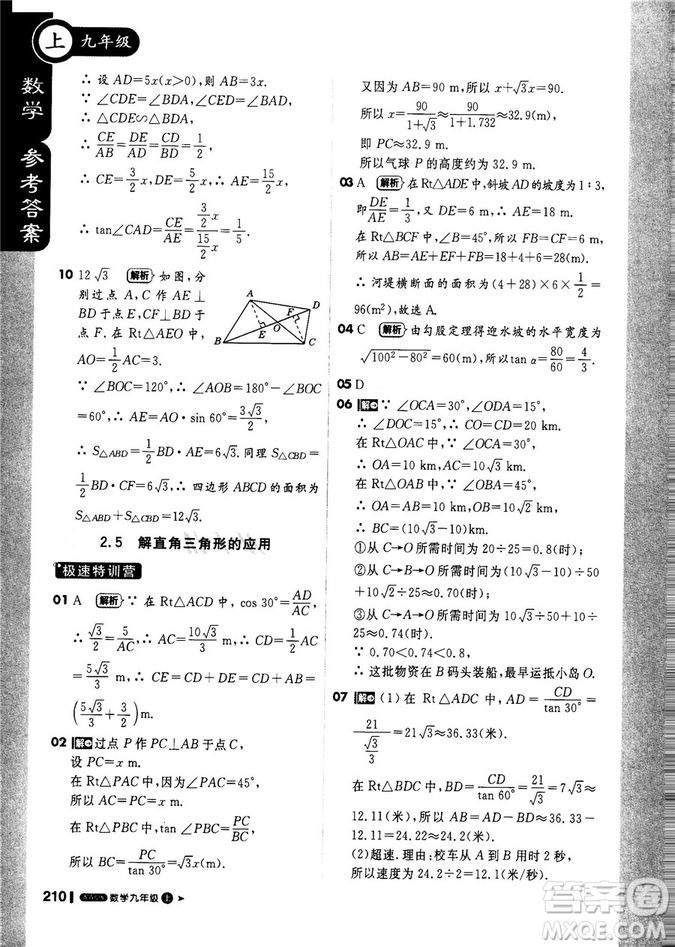 上 九年级
数学 参考答案
∴ 设 AD=5x(x>0),则 AB=3x.
∵ ∠CDE=∠BDA,∠CED=∠BAD,
∴ △CDE∽△BDA,
∴ CE/AB=DE/AD=CD/BD=1/2,
∴ CE=3/2x,DE=5/2x,∴ AE=15/2x,
∴ tan∠CAD=CE/AE=(3/2)/(15/2)=1/5.
10 12√3 解析 如图,分
别过点 A,C 作 AE⊥
BD于点 E,CF⊥BD于
点 F.在 Rt△AEO 中,
AO=1/2AC=3.
∵ ∠BOC=120°,∴ ∠AOB=180°-∠BOC
=60°,∴ AE=AO·sin 60°=3√3/2,
∴ S△ABD=1/2BD·AE=6√3.同理 S△CDB=
1/2BD·CF=6√3,∴ 四边形 ABCD 的面积为
S△ABD+S△CDB=12√3.
A
D
F
O
E
B
C
2.5 解直角三角形的应用
极速特训营
01 A 解析 ∵ 在 Rt△ACD 中,cos 30°=AD/AC,
∴ √3/2=5/AC,∴ AC=10√3/3 m,∴ CD=1/2AC=
5√3/3 m,∴ CE=CD+DE=CD+AB=
(5√3/3+3/2) m.
02 解 过点 P作 PC⊥AB于点 C,
设 PC=x m.
在 Rt△PAC 中,因为∠PAC=45°,
所以 AC=x m.
在 Rt△PBC 中,tan∠PBC=PC/BC,
所以 BC=PC/tan 30°=√3x(m).
又因为 AB=90 m,所以 x+√3x=90.
所以 x=90/(1+√3)≈90/(1+1.732)≈32.9(m),
即 PC≈32.9 m.
所以气球 P 的高度约为 32.9 m.
03 A 解析 在 Rt△ADE 中,斜坡 AD的坡度为 1∶3,
即DE/AE=1/3,又∵ DE=6 m,∴ AE=18 m.
在 Rt△BCF 中,∵ ∠B=45°,∴ BF=CF=6 m,
∴ AB=AE+EF+FB=18+4+6=28(m).
∴ 河堤横断面的面积为(4+28)×6×1/2=
96(m²),故选 A.
04 C 解析 由勾股定理得迎水坡的水平宽度为
√(100²-80²)=60(m),所以tan α=80/60=4/3.
05 D
06 解 ∵ ∠OCA=30°,∠ODA=15°,
∴ ∠DOC=15°,∴ CO=CD=20 km.
在 Rt△OAC 中,∵ ∠OCA=30°,
∴ OA=10 km,AC=10√3 km.
在 Rt△OAB 中,∵ ∠OBA=45°,
∴ OA=AB=10 km,OB=10√2 km,
∴ BC=(10√3-10) km.
①从 C→O 所需时间为 20÷25=0.8(时);
②从 C→B→O 所需时间为(10√3-10)÷50+
10√2÷25≈0.70(时);
③从 C→A→O 所需时间为 10√3÷50+10÷
25≈0.74(时).
∵ 0.70<0.74<0.8,
∴ 这批物资在 B 码头装船,最早运抵小岛 O.
07 解 (1)在 Rt△ADC 中,AD=CD/tan 30°=
21/(√3/3)=21√3≈36.33(米),
在 Rt△BDC 中,BD=CD/tan 60°=21/√3=7√3≈
12.11(米),所以 AB=AD-BD≈36.33-
12.11≈24.2(米).
(2)超速.理由:校车从 A 到 B 用时 2 秒,
所以速度为 24.2÷2=12.1(米/秒).
210 数学九年级 上
答案圈